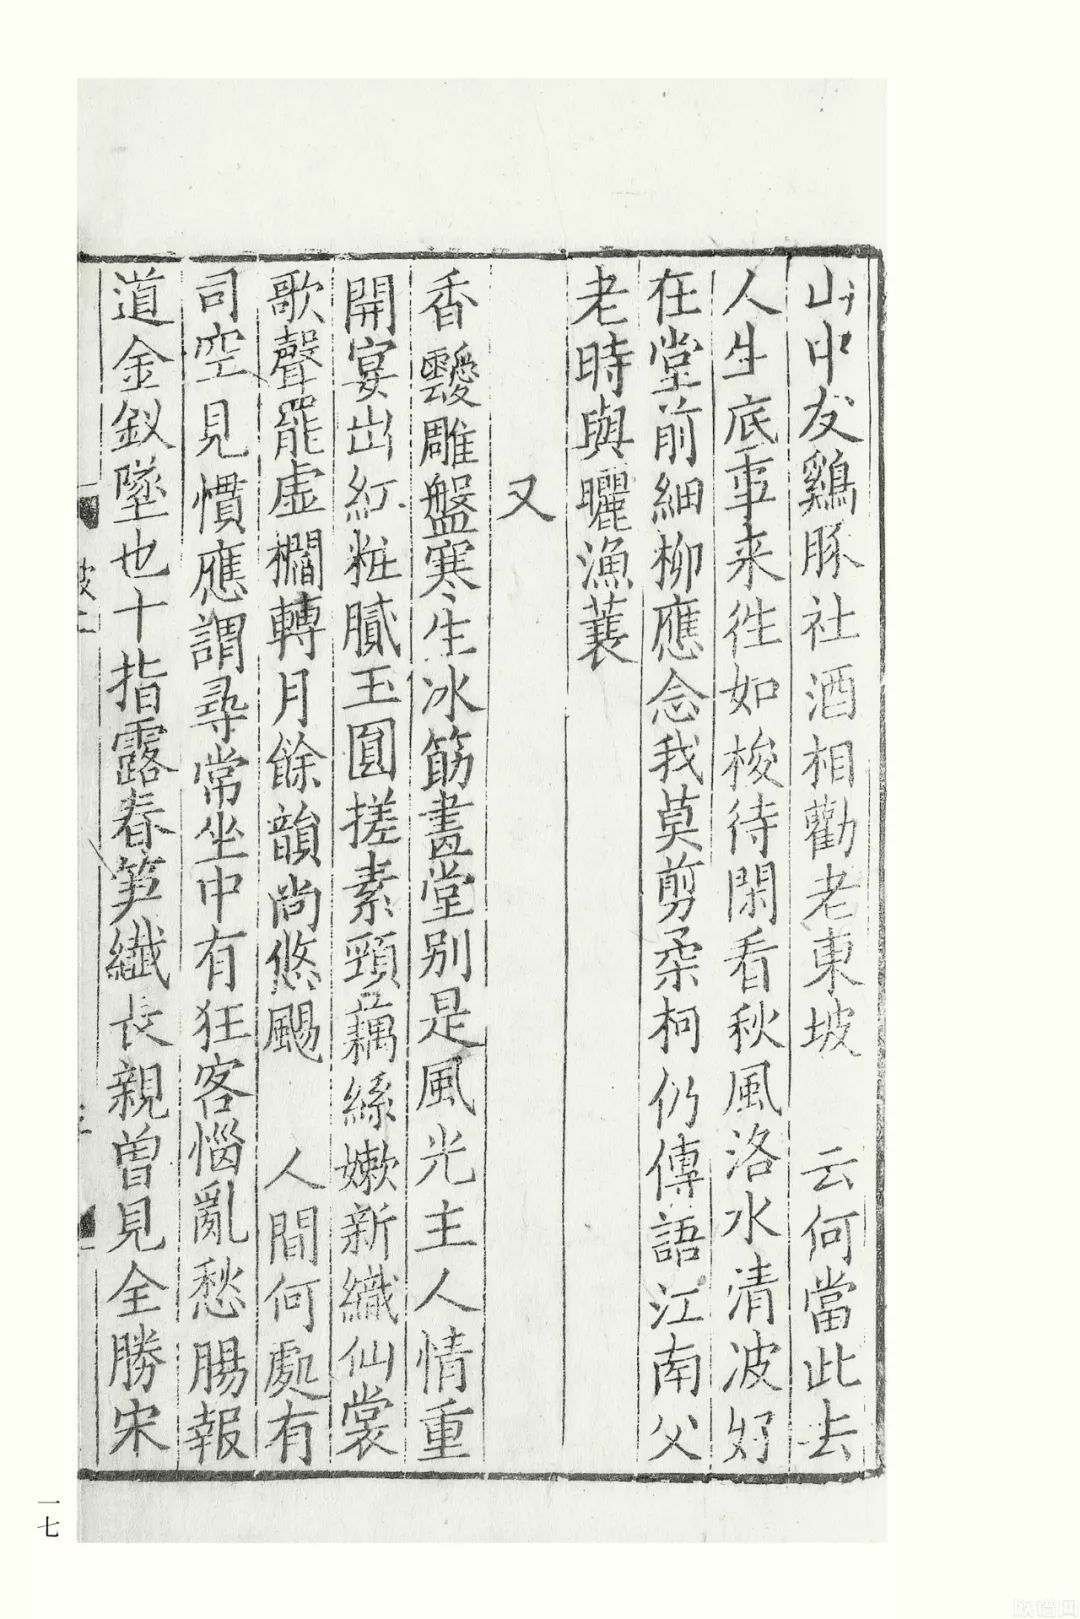 山中友鷄豚社酒相勸老東坡　云何當此去
人生底事来徃如梭待閑看秋風洛水清波好
在堂前細柳應念我莫剪柔柯仍傳語江南父
老時與曬漁蓑
又
香靉雕盤寒生冰筯畫堂别是風光主人情重
開宴出紅粧膩玉圓搓素頸藕絲嫰新織仙裳
歌聲罷虛櫩轉月餘韻尚悠颺　人間何處有
司空見慣應謂尋常坐中有狂客惱亂愁膓報
道金釵墜也十指露春笋纖長親曽見全勝宋
一七
族谱网